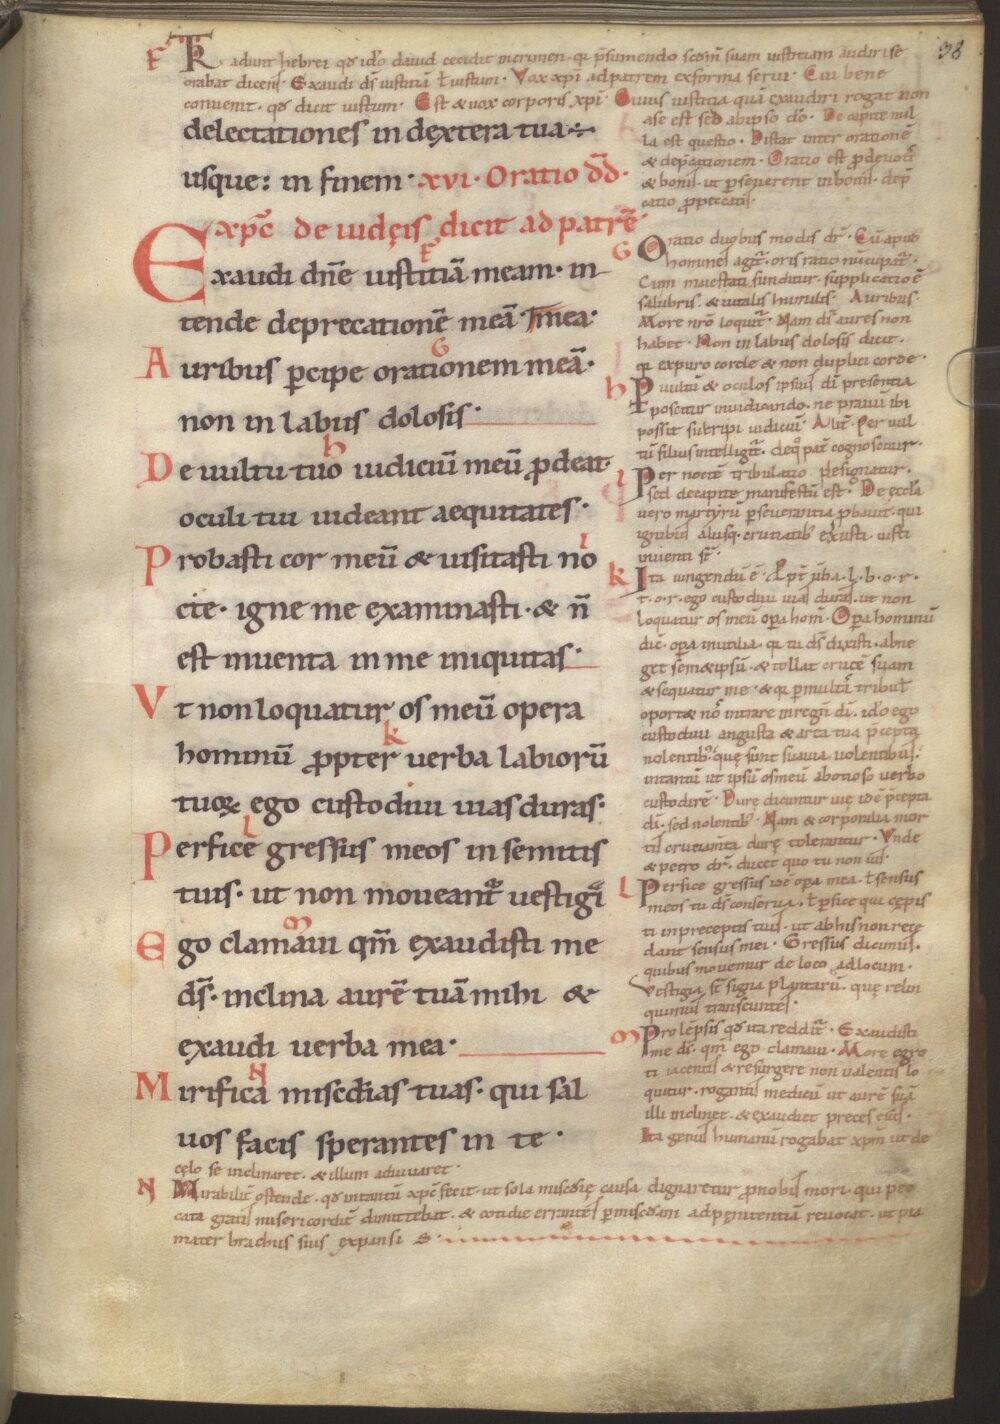 38
F TRadunt hebrei qđ iđo dauid cecidit incrimen. qi p̄sumendo scđm suam iustitiam audiri se
orabat dicens. Exaudi ds̄ iustitiā ł iustum. Vox xpi ad patrem ex forma serui. Cui bene
conuenit. qđ dicit iustum. Est & uox corporis xpi. Cuius iusticia quā exaudiri rogat non
delectationes in dextera tua
usque: in finem. xvi. Oratio dd̄.
xpc̄ de iudęis dicit ad patrē
F
Exaudi dn̄e iustitiā meam. in
tende deprecationē meā
G
Auribus ꝑcipe orationem meā.
non in labiis dolosis.
h
De uultu tuo iudiciū meū ꝓdeat.
oculi tui uideant aequitates.
I
Probasti cor meū & uisitasti no
cte. igne me examinasti. & n̄
est inuenta in me iniquitas.
Vt non loquatur os meū opera
k
hominū ꝓpter uerba labiorū
tuoꝝ ego custodiui uias duras.
L
Perfice gressus meos in semitis
tuis. ut non moueant᷑ uestigia
m
Ego clamaui qm̄ exaudisti me
ds̄. inclina aurē tuā mihi &
exaudi uerba mea.
N
Mirifica misc̄dias tuas. qui sal
uos facis sperantes in te.
ase est sed ab ipso do. De capite nul
la est questio. Distat inter orationē
& dep̄cationem. Oratio est ꝓ deuotis
& bonis. ut ꝑseuerent in bonis. dep̄
catio ꝓ peccatis.
G Oratio duobus modis dr̄. Cū apud
homines agit᷑. oris ratio nuncupat᷑.
Cum maiestati funditur. supplicatio ē
salubris. & uitalis humilis. Auribus.
More nrō loquit᷑. Nam ds̄ aures non
habet. Non in labiis dolosis dicit.
qi ex puro corde & non duplici corde.
h P uultū & oculos ipsius di presentia
poscitur in iudicando. ne prauū ibi
possit subripi iudiciū. Alit᷑. Per uul
tū filius intelligit᷑. de q̊ pat̄ cognoscitur.
I Per noctē tribulatio designatur.
sed de capite manifestū est. De ęccła
uero martyrū ꝑseuerantia ꝓbauit. qui
ignibus aliisq. cruciatib' exusti. iusti
inuenti st̄.
k Ita iungendū ē. Ppt̄ ūba. l. b. o. r.
t. o. r. ego custodiui uias duras. ut non
loquatur os meū opera homī. Opera hominū
dic̄. opera inutilia. qi tu ds̄ dixisti. abne
get semetipsū. & tollat crucē suam
& sequatur me. & qi ꝑ multā tribul
oportet nos intrare in regnū di. ido ego
custodiui angusta & arta tua p̄cepta
nolentib'. quę sunt suauia uolentibus.
in tantū ut ipsū os meū ab otioso uerbo
custodirē. Durę dicuntur uię idē p̄cepta
di. sed nolentib'. Nam & corporalia mor
tis cruciam̄ta durę tolerantur. Vnde
& petro dr̄. ducet quo tu non uis.
L Perfice gressus idē opera mea. ł sensus
meos tu ds̄ conserua. ł ꝑfice qui cępis
ti in preceptis tuis. ut ab his non rece
dant sensus mei. Gressus dicimus.
quibus mouemur de loco ad locum.
Vestigia st̄ signa plantarū. quę relin
quimus transeuntes.
m Prolępsis qđ ita reddit᷑. Exaudisti
me ds̄. qm̄ ego clamaui. More egro
ti iacentis & resurgere non ualentis lo
quitur. rogantis medicū ut aurē suā
illi inclinet. & exaudiet preces eius.
Ita genus humanū rogabat xpm̄ ut de
cęlo se inclinaret. & illum adiuuaret.
N Mirabilit᷑ ostende. qđ in tantū xpc̄ fecit. ut sola misc̄dię causa dignaretur ꝓ nobis mori. qui pec
cata gratis misericordit᷑ dimittebat. & cotidie errantes ꝑ misc̄diam ad pęnitentiā reuocat. ut pia
mater brachiis suis expansis.